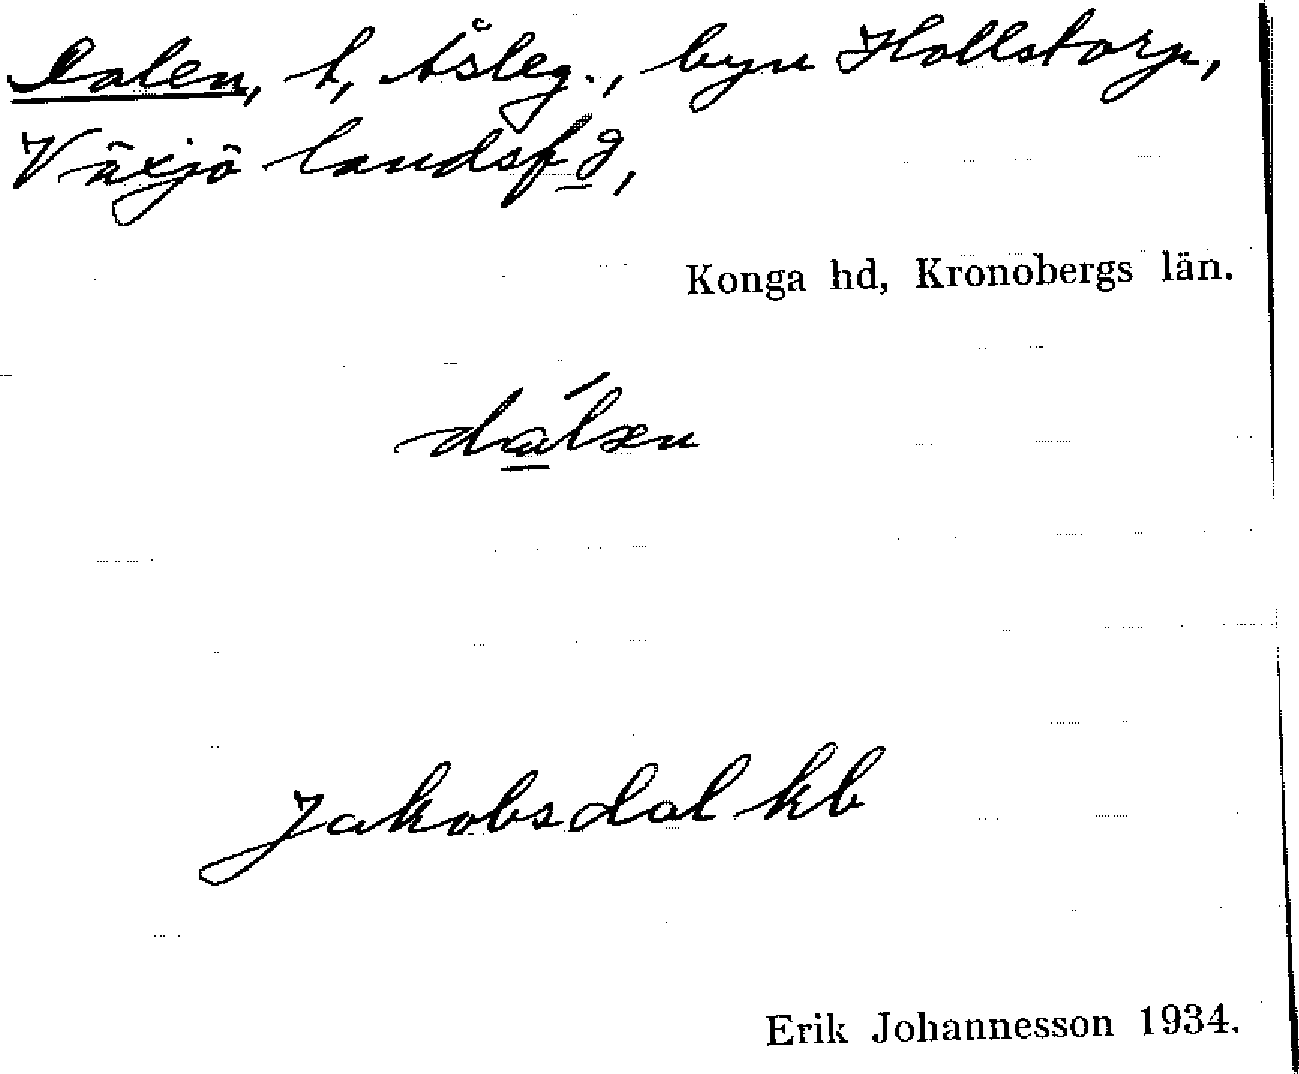 Dalen, t, åsleg., byn Hollstorp,
Växjö landsfg,
Konga hd, Kronobergs län.
dálæn
Jakobsdal kb
Erik Johannesson 1934.